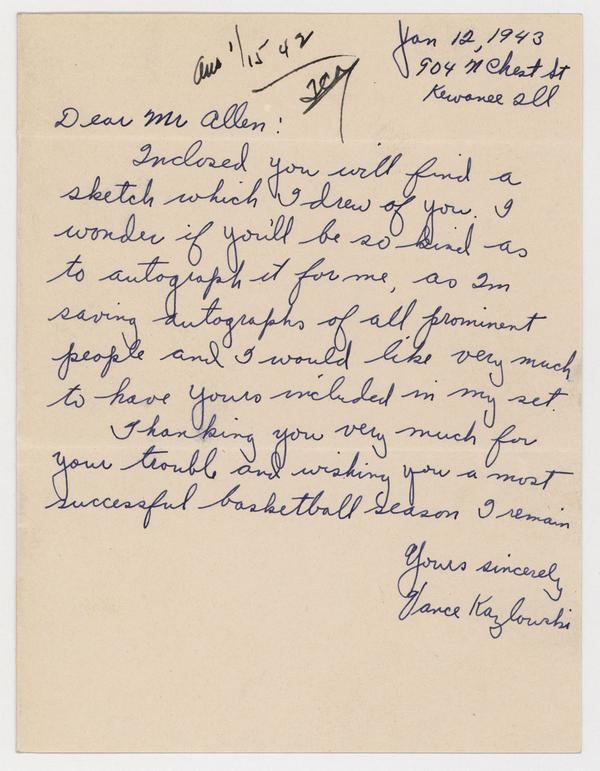 Ans 1/15 42
Jan 12, 1943
904 N Chest St
Kewanee Ill
Dear Mr Allen:
Inclosed you will find a
sketch which I drew of you. I
wonder if you'll be so kind as
to autograph it for me, as Im
saving autographs of all prominent
people and I would like very much
to have yours included in my set.
Thanking you very much for
your trouble and wishing you a most
successful basketball season I remain
Yours sincerely
Vance Kazlowski